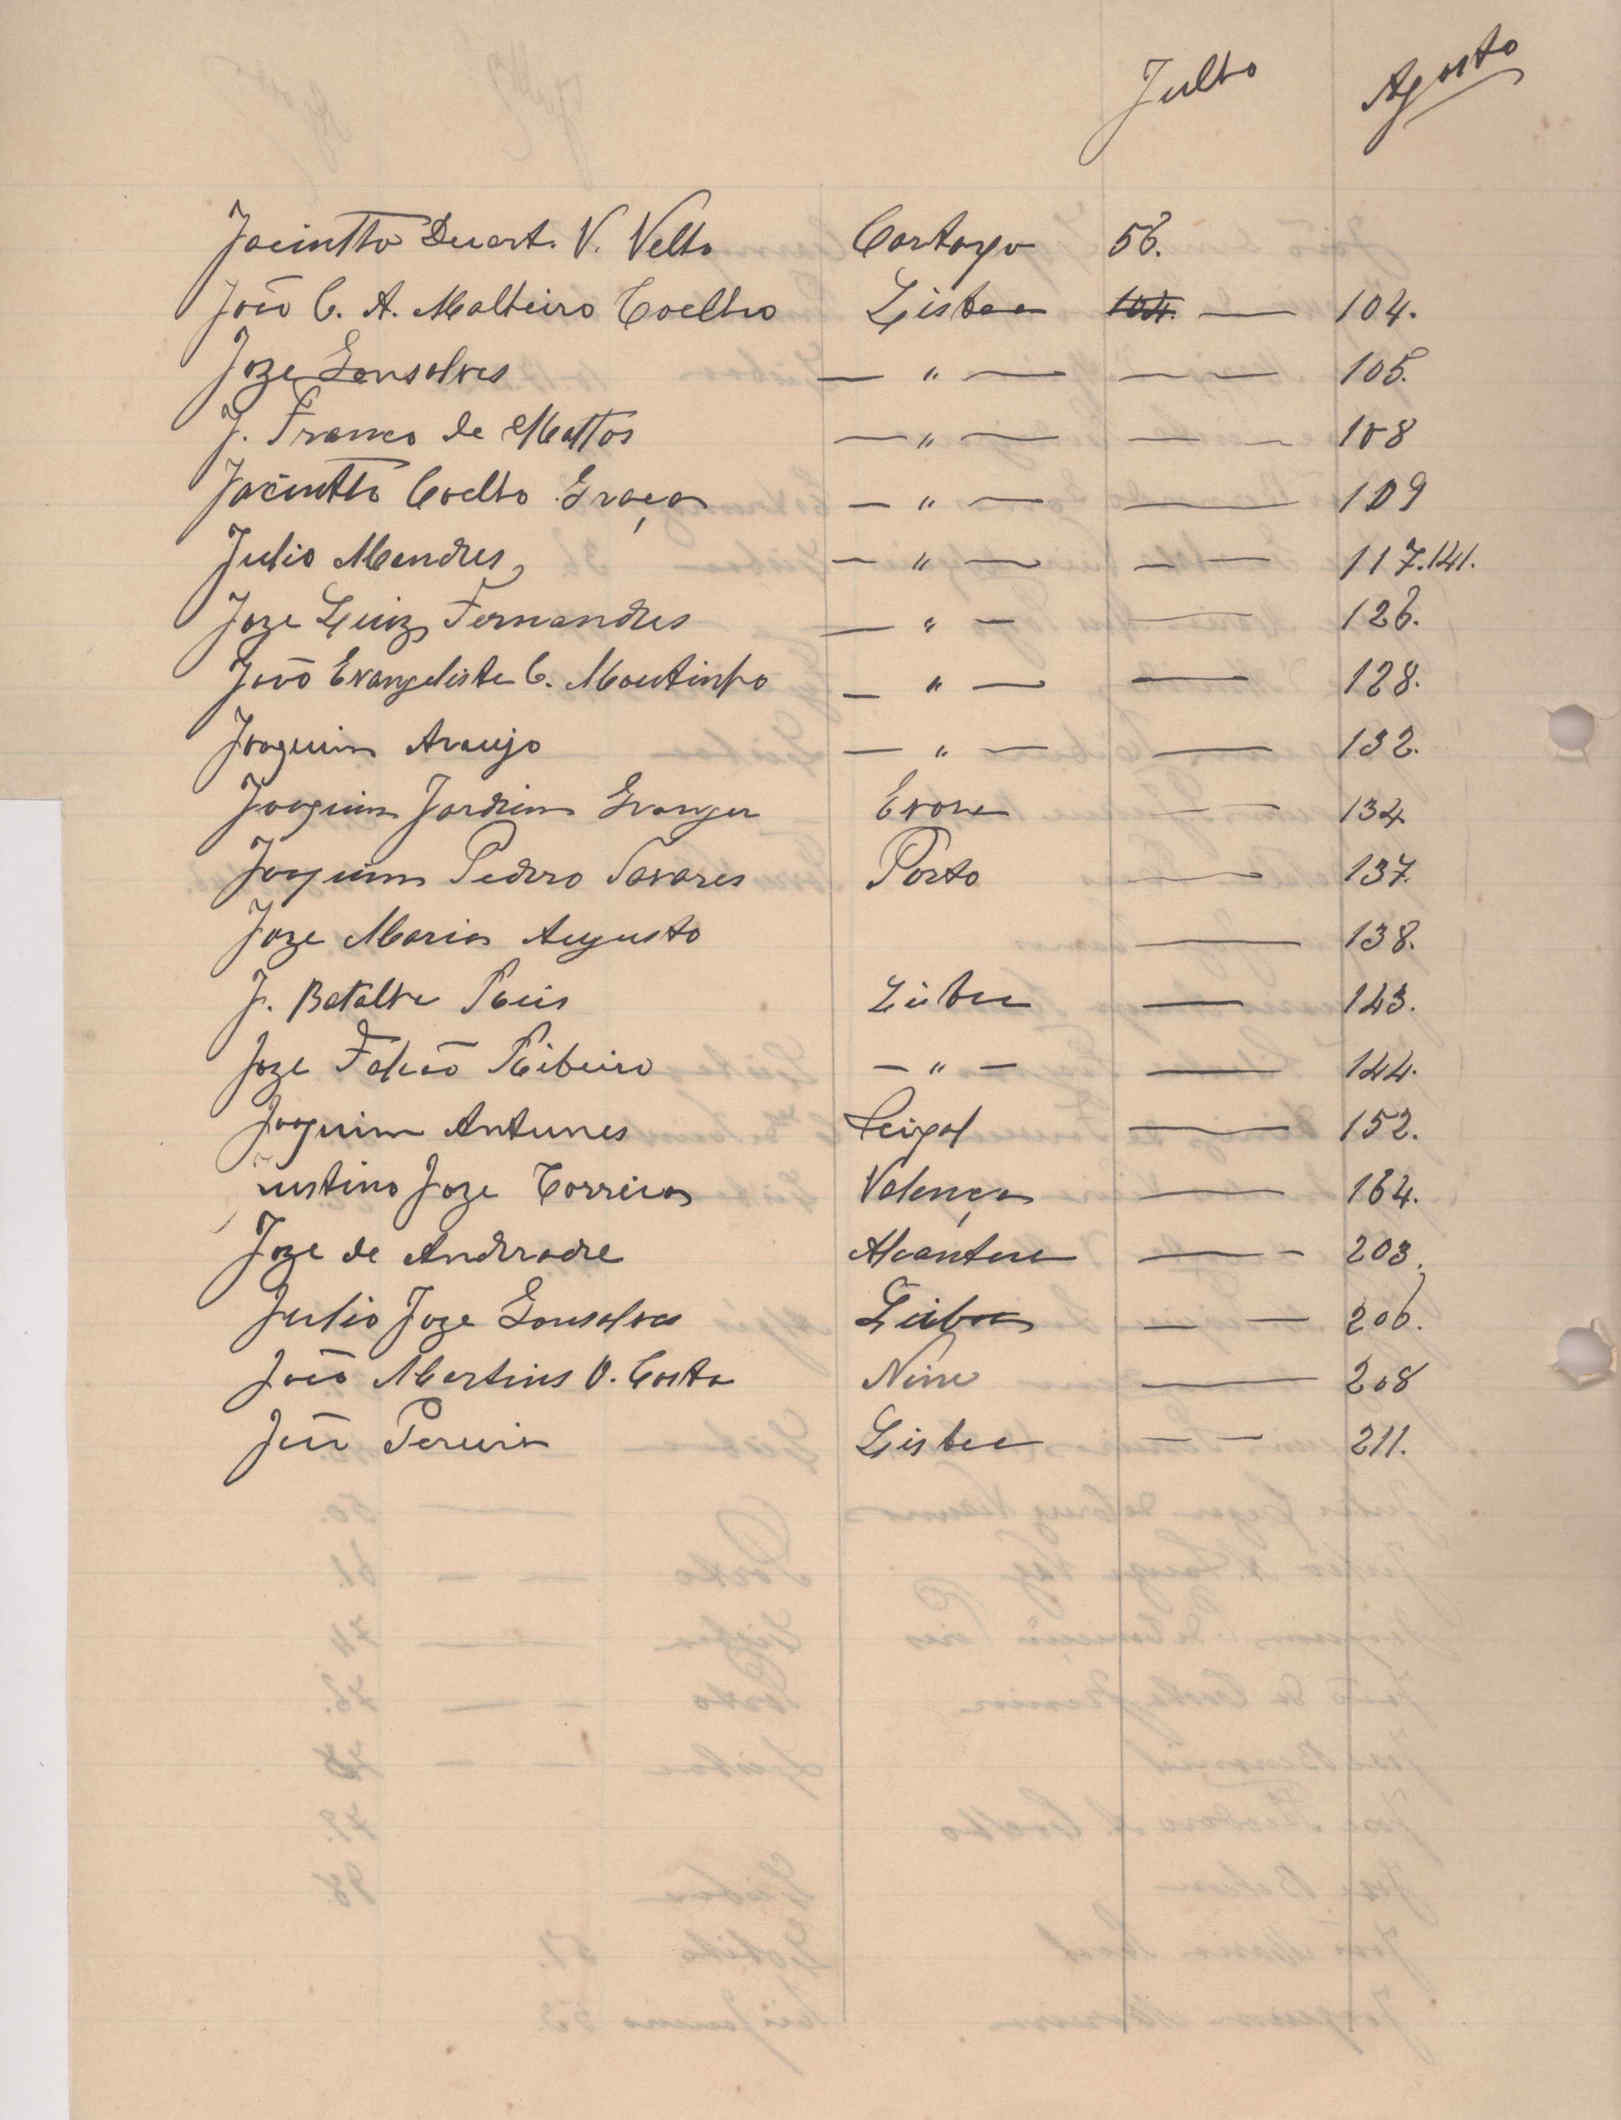 Julho Agosto
Jacintho Duart. V. Velho Cartaxo 56.
João C. A. Malheiro Coelho Lisboa 104. — 104.
Joze Gonsalves — " — — — 105.
J. Franco de Mattos — " — — — 108
Jacintho Coelho Graça — " — — 109
Julio Mendes — " — — — 117.141.
Joze Luiz Fernandes — " — — 126.
João Evangelista C. Moutinho — " — — 128.
Joaquim Araujo — " — — 132.
Joaquim Jardim Granger Evora — — 134
Joaquim Pedro Tavares Porto — 137.
Joze Maria Augusto — 138.
J. Batalha Reis Lisboa — 143.
Joze Falcão Ribeiro — " — — 144.
Joaquim Antunes — 152.
Justino Joze Correia Valença — 164.
Joze de Andrade Alcantara — — 203.
Julio Joze Gonsalves Lisboa — — 206.
João Martins V. Costa Nine — 208
João Pereira Lisboa — — 211.